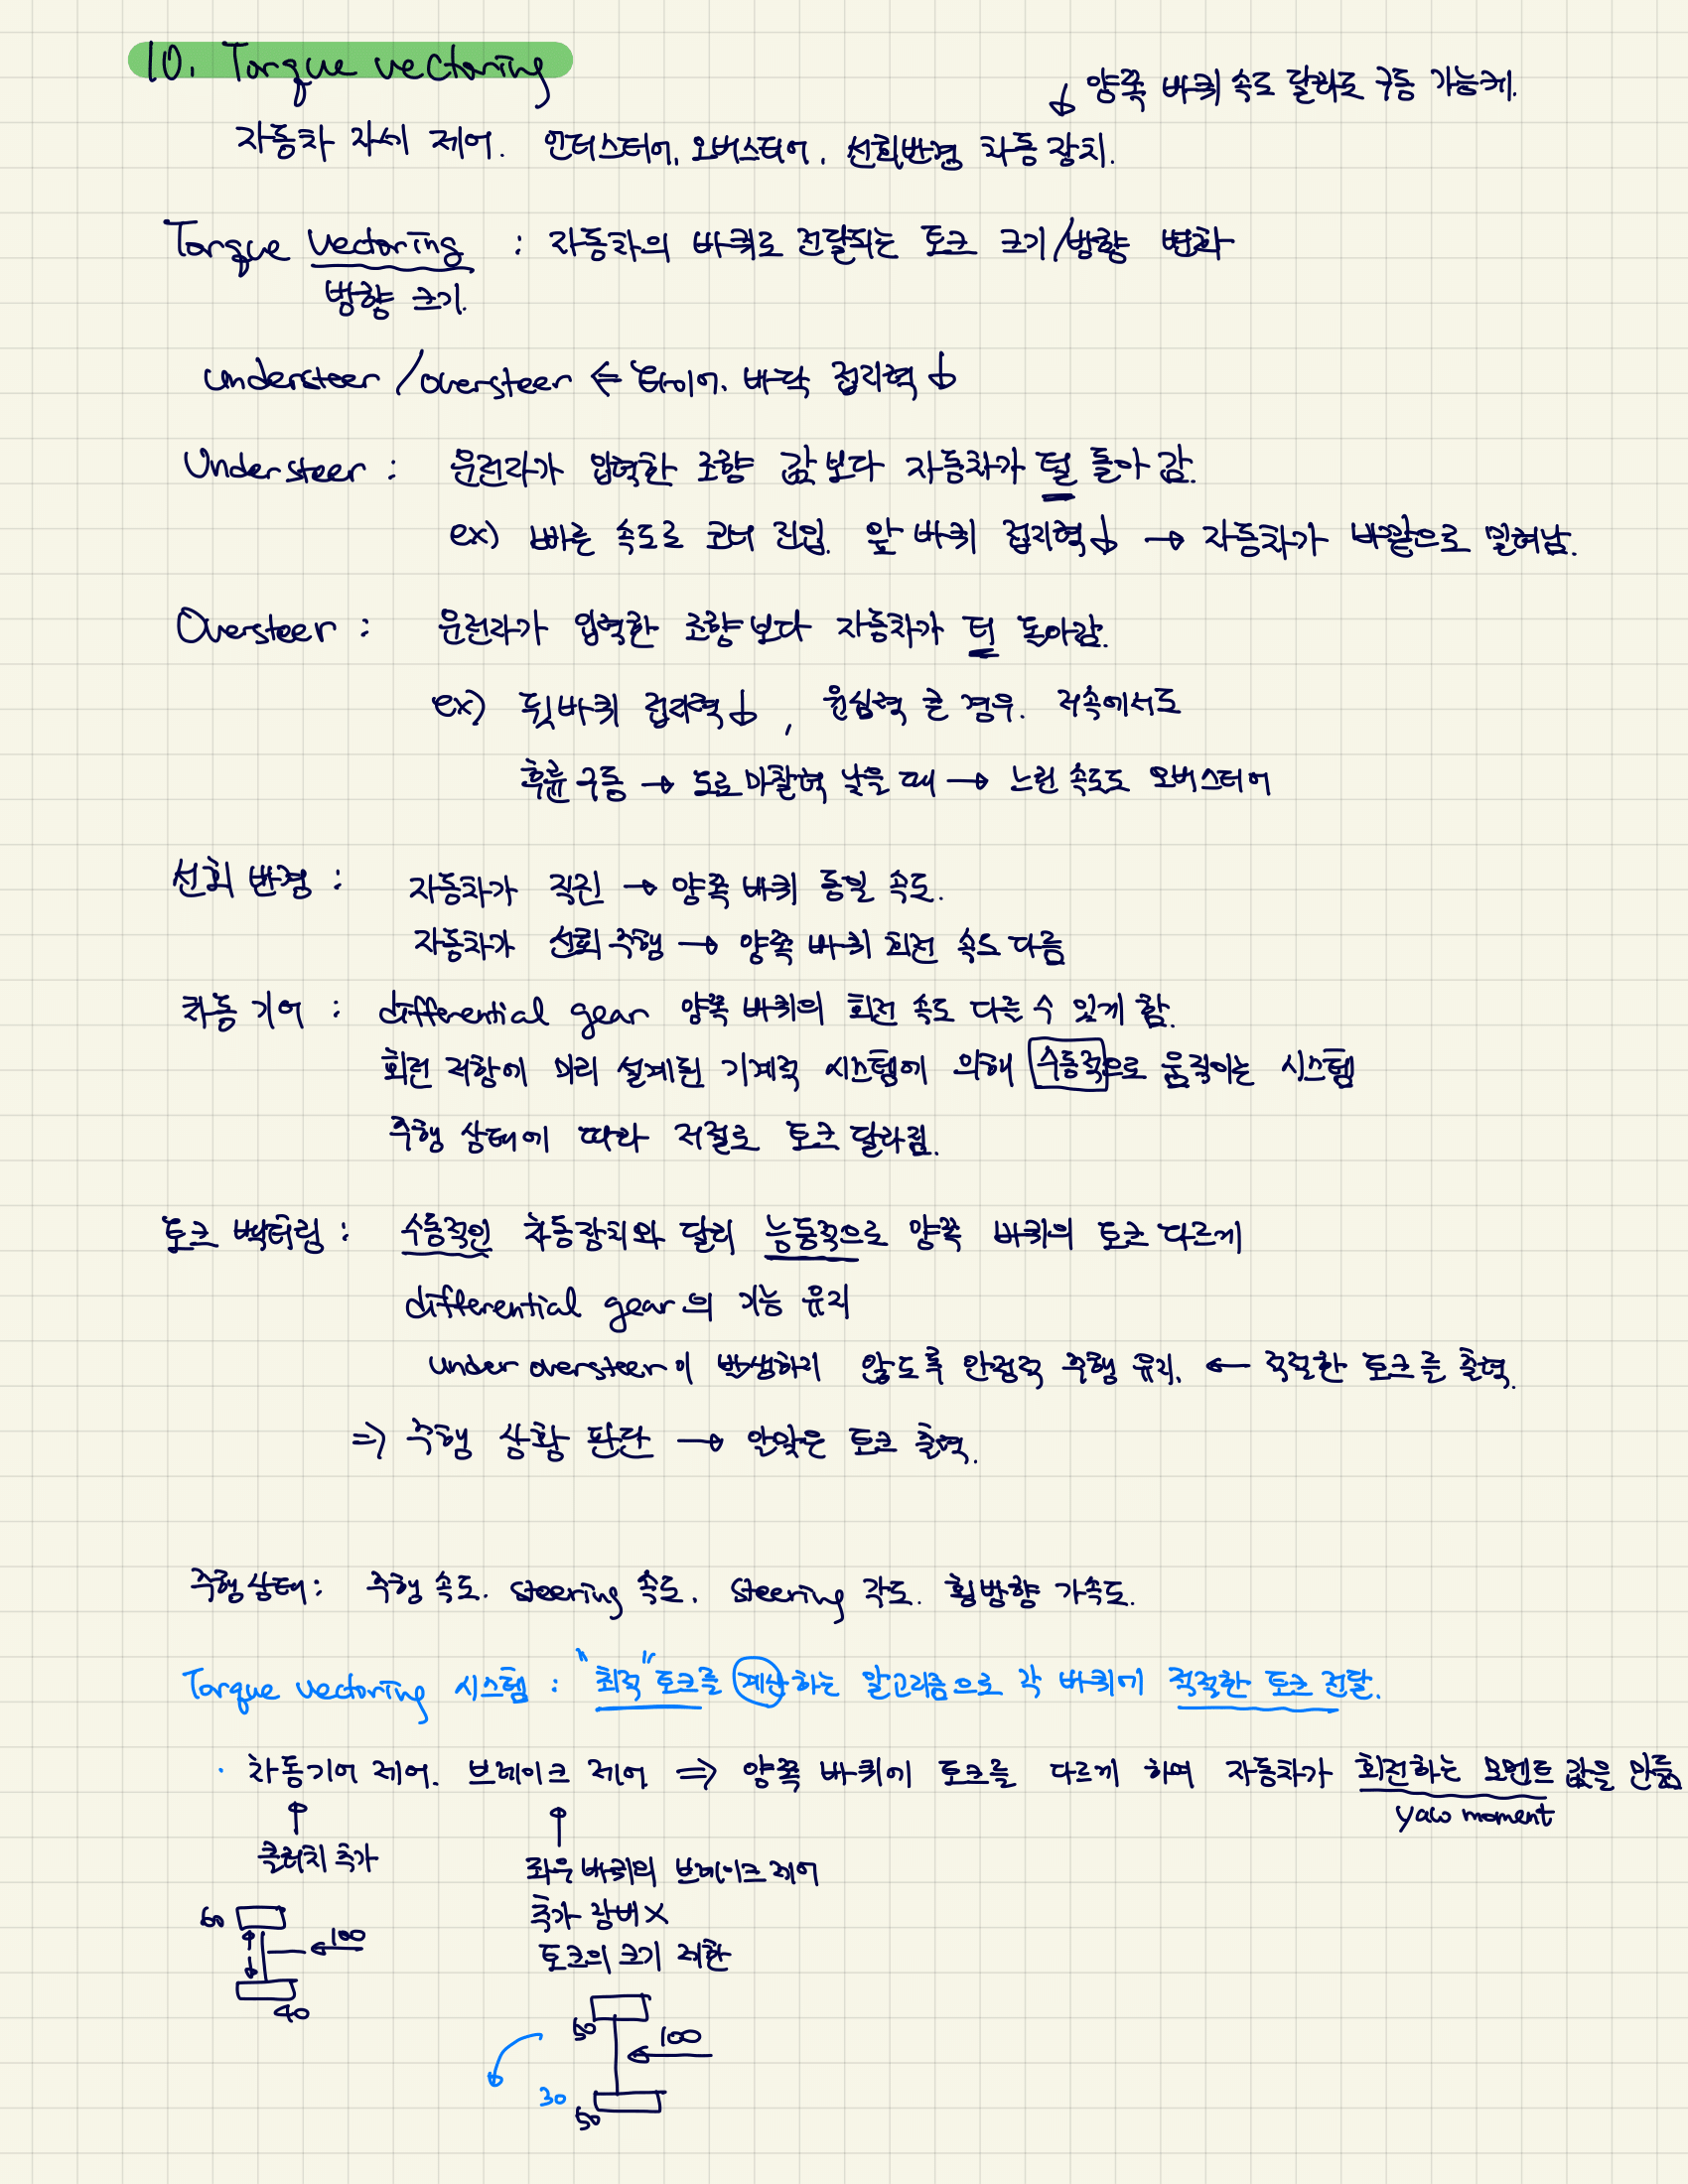 10. Torque vectoring
↓ 양쪽 바퀴 속도 달라도 구동 가능케.
자동차 자세 제어. 언더스티어, 오버스티어, 선회반경 차동장치.
Torque vectoring : 자동차의 바퀴로 전달되는 토크 크기/방향 변화
방향 크기.
understeer / oversteer ⇐ 타이어. 바닥 접지력 ↓
Understeer : 운전자가 입력한 조향 값보다 자동차가 덜 돌아감.
ex) 빠른 속도로 코너 진입. 앞 바퀴 접지력↓ → 자동차가 바깥으로 밀려남.
Oversteer : 운전자가 입력한 조향보다 자동차가 더 돌아감.
ex) 뒷바퀴 접지력↓, 원심력 큰 경우. 저속에서도
후륜 구동 → 도로 마찰력 낮을 때 → 느린 속도도 오버스티어
선회 반경 : 자동차가 직진 → 양쪽 바퀴 동일 속도.
자동차가 선회 주행 → 양쪽 바퀴 회전 속도 다름
차동 기어 : differential gear 양쪽 바퀴의 회전 속도 다를 수 있게 함.
회전 저항에 미리 설계된 기계적 시스템에 의해 수동적으로 움직이는 시스템
주행 상태에 따라 저절로 토크 달라짐.
토크 벡터링 : 수동적인 차동장치와 달리 능동적으로 양쪽 바퀴의 토크 다르게
differential gear의 기능 유지
under oversteer이 발생하지 않도록 안정적 주행 유지. ← 적절한 토크를 출력.
⇒ 주행 상황 판단 → 알맞은 토크 출력.
주행상태 : 주행 속도. steering 속도. steering 각도. 횡방향 가속도.
Torque vectoring 시스템 : "최적" 토크를 계산하는 알고리즘으로 각 바퀴에 적절한 토크 전달.
· 차동기어 제어. 브레이크 제어 ⇒ 양쪽 바퀴에 토크를 다르게 하여 자동차가 회전하는 모멘트 값을 만듦
yaw moment
↑ ↑
클러치 추가
좌우 바퀴의 브레이크 제어
추가 장비 X
토크의 크기 제한
60
← 100
40
50
← 100
30
50